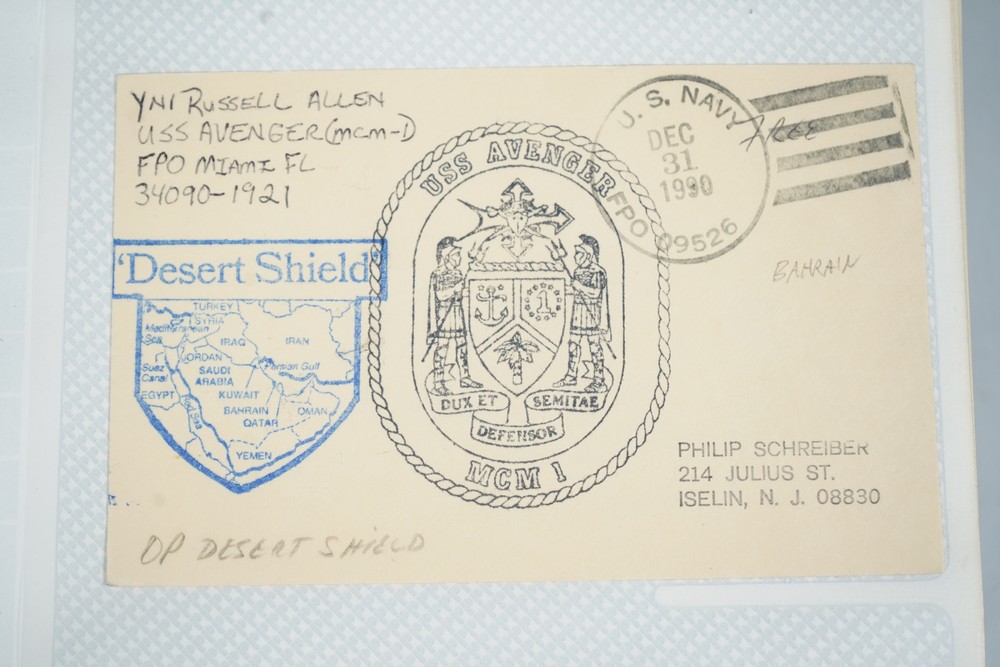 YN1 RUSSELL ALLEN
USS AVENGER (MCM-1)
FPO MIAMI FL
34090-1921
U. S. NAVY
DEC
31
1990
FPO 09526
FREE
BAHRAIN
'Desert Shield'
TURKEY
SYRIA
Mediterranean
Sea
IRAQ
IRAN
JORDAN
Suez
Canal
SAUDI
ARABIA
Persian Gulf
EGYPT
KUWAIT
BAHRAIN
QATAR
OMAN
Red Sea
YEMEN
USS AVENGER
1
DUX ET SEMITAE
DEFENSOR
MCM 1
PHILIP SCHREIBER
214 JULIUS ST.
ISELIN, N. J. 08830
OP DESERT SHIELD